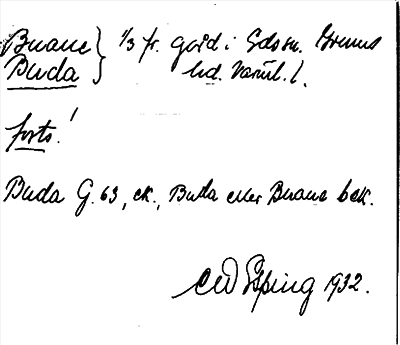 Buane } 1/3 fr. gård i Edssn. Grums
Buda hd. Värml. l.
forts.!
Buda G. 63, ek., Buda eller Buane bek.
1932.